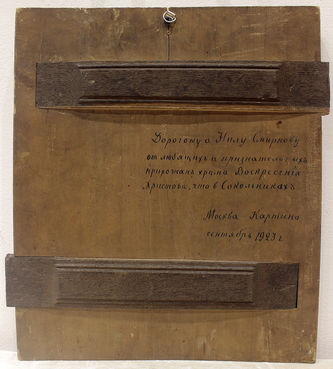 Дорогому о Нилу Смирнову
от любящихъ и признательныхъ
прихожанъ храма Воскресенія
Христова, что в Сокольникахъ
Москва
сентябрь 1923 г